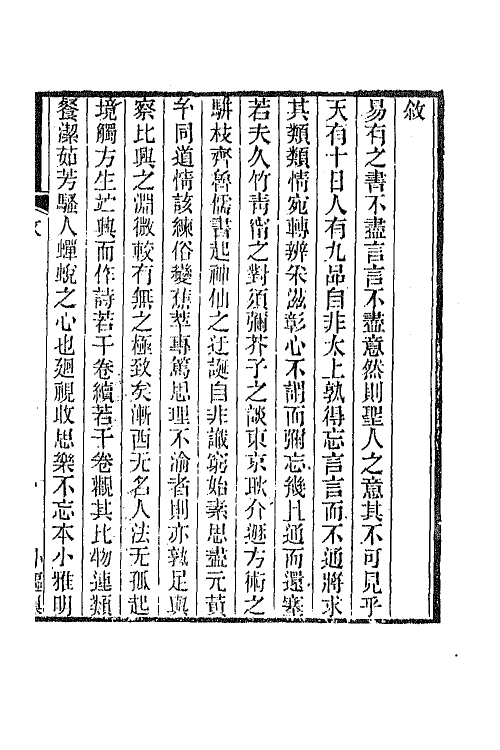 敘
易有之書不盡言言不盡意然則聖人之意其不可見乎
天有十日人有九品自非太上孰得忘言言而不通將求
其類類情宛轉辨釆滋彰心不謂而彌忘幾且通而還塞
若夫久竹靑甯之對須彌芥子之談東京耿介遯方術之
駢枝齊魯儒書起神仙之迂誕自非識窮始素思盡元黃
六同道情該練俗變蕉萃專篤思理不渝者則亦孰足與
察比興之淵微較有無之極致矣漸西无名人法无孤起
境觸方生迣興而作詩若干卷續若干卷觀其比物連類
餐潔茹芳騷人蟬蛻之心也迴視收思樂不忘本小雅明